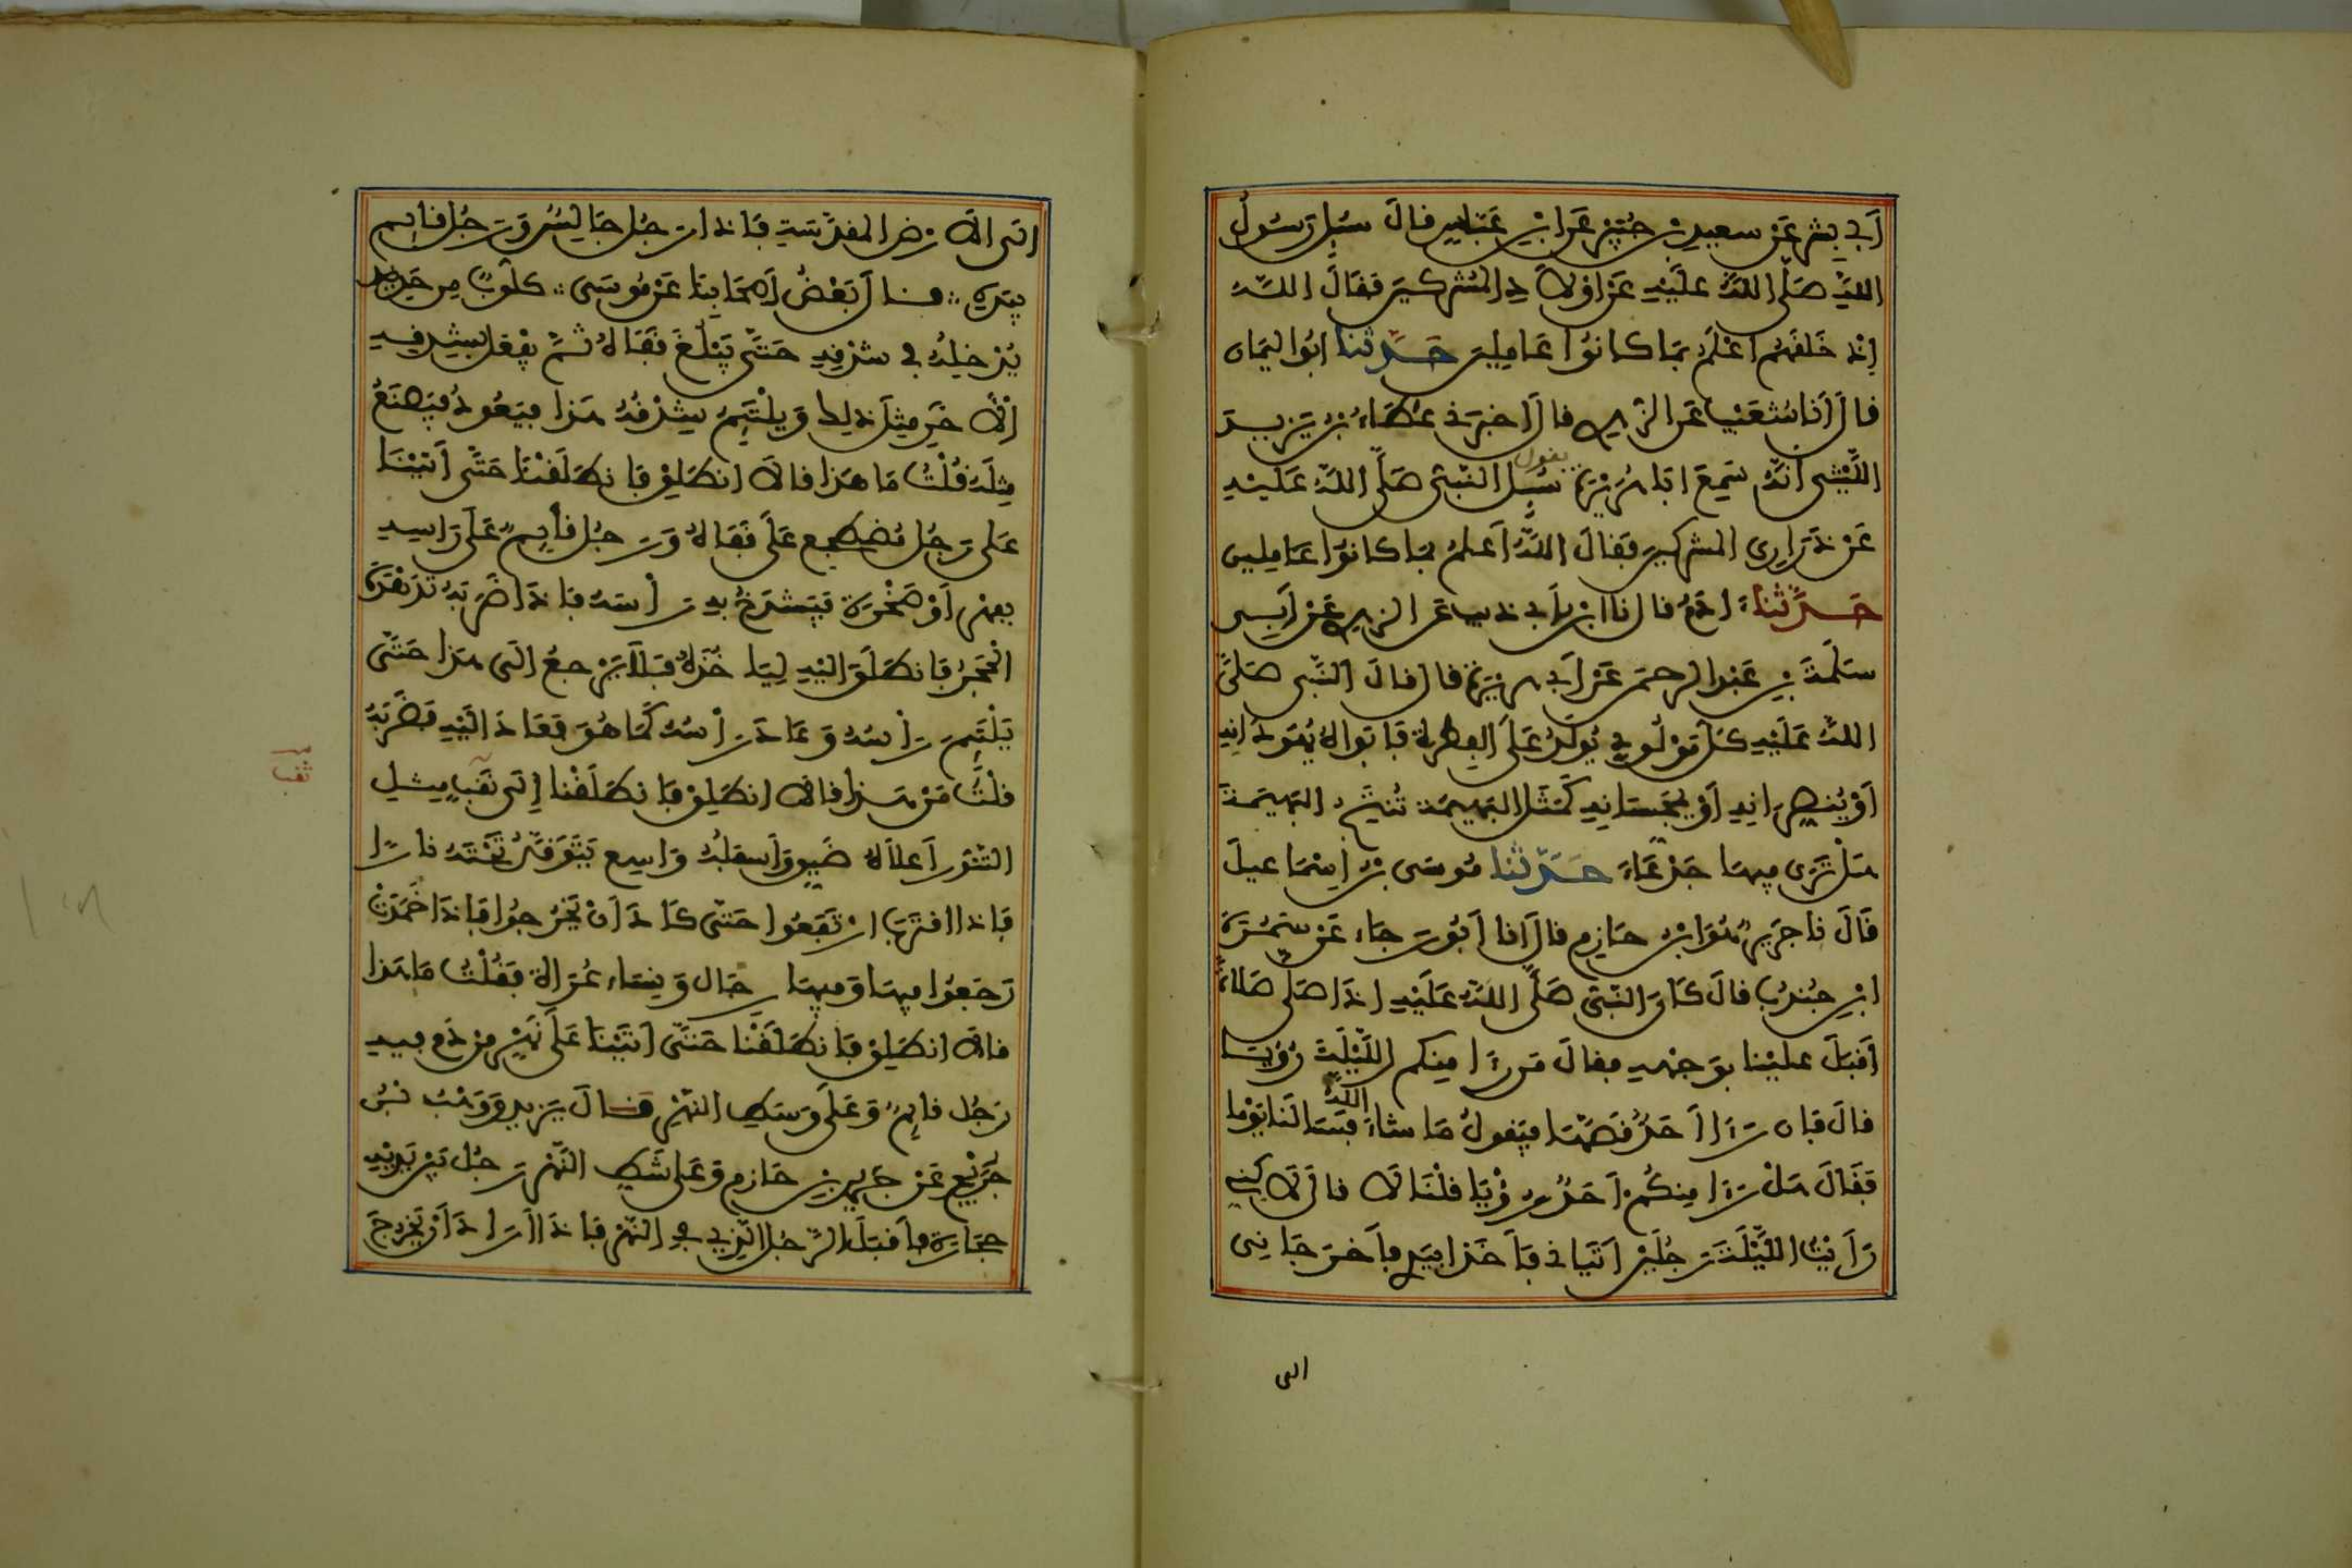 أَبِي بِشْرٍ عَن سعيدِ بنِ جُبَيْرٍ عَنِ ابْنِ عَبّاسٍ قالَ سُئِلَ رَسُولُ
اللهِ صَلّى اللهُ عَلَيْهِ عَنْ اوْلَادِ المُشْرِكِينَ فقَالَ اللهُ
إذْ خَلَقَهُم أَعْلَمُ بمَا كانُوا عَامِلِينَ حَدَّثنا ابُو اليَمَان
قالَ أنا شُعَيْبٌ عَنِ الزُّهري قالَ أخبرَنِي عَطَاءُ بْنُ يَزِيدَ
اللَّيْثي أنّهُ سَمِعَ ابَا هُرَيْرَةَ يقول سُئِلَ النَّبيُّ صَلّى اللهُ عَلَيْهِ
عَنْ ذَرَارِي المشركينَ فَقَالَ اللهُ أَعلمُ بمَا كانوُا عَامِلِين
حَدَّثنا ادَمُ قال نا ابنُ أبي ذيب عَن الزهري عَنْ أَبِي
سَلَمَةَ بنِ عَبْدِ الرحمنِ عَنْ أبي هريرَةَ قال قالَ النَّبي صَلّى
اللهُ عَلَيْهِ كُلُّ مَوْلُودٍ يُولَدُ عَلَى الفِطْرَةِ فَأبَوَاهُ يُهَوِّدَانِهِ
أوْ يُنَصِّرَانِهِ أَوْ يُمَجِّسَانِهِ كَمَثَلِ البَهِيمَةِ تُنْتَجُ البَهِيمَةَ
هَلْ تَرَى فِيهَا جَدْعَاءَ حَدَّثنا مُوسَى بْنُ إسْمَاعِيلَ
قَالَ نا جَرِيرٌ هُوَ ابْنُ حَازِمٍ قالَ أنا أبُو رَجَاءٍ عَنْ سَمُرَةَ
ابْنِ جُنْدُبٍ قالَ كَانَ النَّبيُّ صَلَّى اللهُ عَلَيْهِ إذَا صَلّى صَلاةً
أَقْبَلَ علَيْنا بوَجْهِهِ فقالَ مَن رَأَى مِنكم اللَّيْلَةَ رُؤْيَا
قالَ فَإن رَأَى أحَدٌ قَصَّهَا فيَقولُ مَا شاءَ اللهُ فسَألَنَا يَوْمًا
فَقَالَ هَلْ رَأَى مِنكُمْ أحَدٌ رُؤْيَا قُلْنَا لَا قالَ لَاكِنِّي
رَأَيْتُ اللَّيْلَةَ رَجُلَيْنِ أتَيَانِي فَأَخَذَا بيَدِي فأَخرَجَانِي
الى
إلَى الأرْضِ المقدَّسَةِ فَإذا رَجُلٌ جَالِسٌ وَرَجُلٌ قايم
بِيَدِهِ قالَ بَعْضُ أَصْحَابِنَا عَنْ مُوسَى كلُّوبٌ مِن حَدِيدٍ
يُدْخِلُهُ في شِدْقِهِ حَتَّى يَبْلُغَ قَفَاهُ ثُمَّ يفْعَلُ بشِدْقِهِ
الْآخَرِ مِثْلَ ذلِكَ وَيَلْتَئِمُ شِدْقُهُ هَذا فيَعُودُ فيَصْنَعُ
مِثلَهُ قُلْتُ مَا هَذا قالَا انطَلِقْ فَانطَلَقْنَا حَتَّى أَتَيْنَا
عَلى رَجُلٍ مُضْطَجِعٍ عَلَى قَفَاهُ وَرَجُلٌ قايِمٌ عَلَى رَاسِهِ
بفِهْرٍ أَوْ صَخْرَةٍ فيَشْدَخُ بهِ رَأْسَهُ فَإذَا ضَرَبَهُ تَدَهْدَهَ
الحَجَرُ فَانطَلَقَ إلَيْهِ لِيَاخُذَهُ فَلَا يَرْجعُ إلَى هَذا حَتَّى
يَلْتَئِمَ رَأْسُهُ وَعَادَ رَأْسُهُ كَمَا هُوَ فَعَادَ إلَيْهِ فَضَرَبَهُ
قُلْتُ مَنْ هَذا قالَا انطَلِقْ فَانطَلَقْنا إلَى نَقْبٍ مِثْلِ
التَّنُّورِ أعلاهُ ضَيِّقٌ وَأسفلُهُ وَاسِعٌ يَتَوَقَّدُ تَحْتَهُ نارًا
فَإذا اقتَرَبَ ارْتَفَعُوا حَتَّى كَادَ أَنْ يَخْرُجُوا فَإذَا خَمَدَتْ
رَجَعُوا فِيهَا وَفِيهَا رِجَالٌ وَنِسَاءٌ عُرَاةٌ فقُلْتُ مَا هَذا
قالَا انطَلِقْ فَانطَلَقْنَا حَتَّى أَتَيْنَا عَلَى نَهْرٍ مِنْ دَمٍ فِيهِ
رَجُلٌ قايِمٌ وَعَلَى وَسَطِ النَّهْرِ قالَ يَزِيدُ وَوَهْبُ بْنُ
جَرِيرٍ عَنْ جَرِيرِ بْنِ حَازِمٍ وَعَلى شَطِّ النَّهْرِ رَجُلٌ بَيْنَ يَدَيْهِ
حِجَارَةٌ فأَقْبَلَ الرَّجُلُ الّذِي في النَّهْرِ فَإذَا أرَادَ أَنْ يَخْرُجَ
ثقب